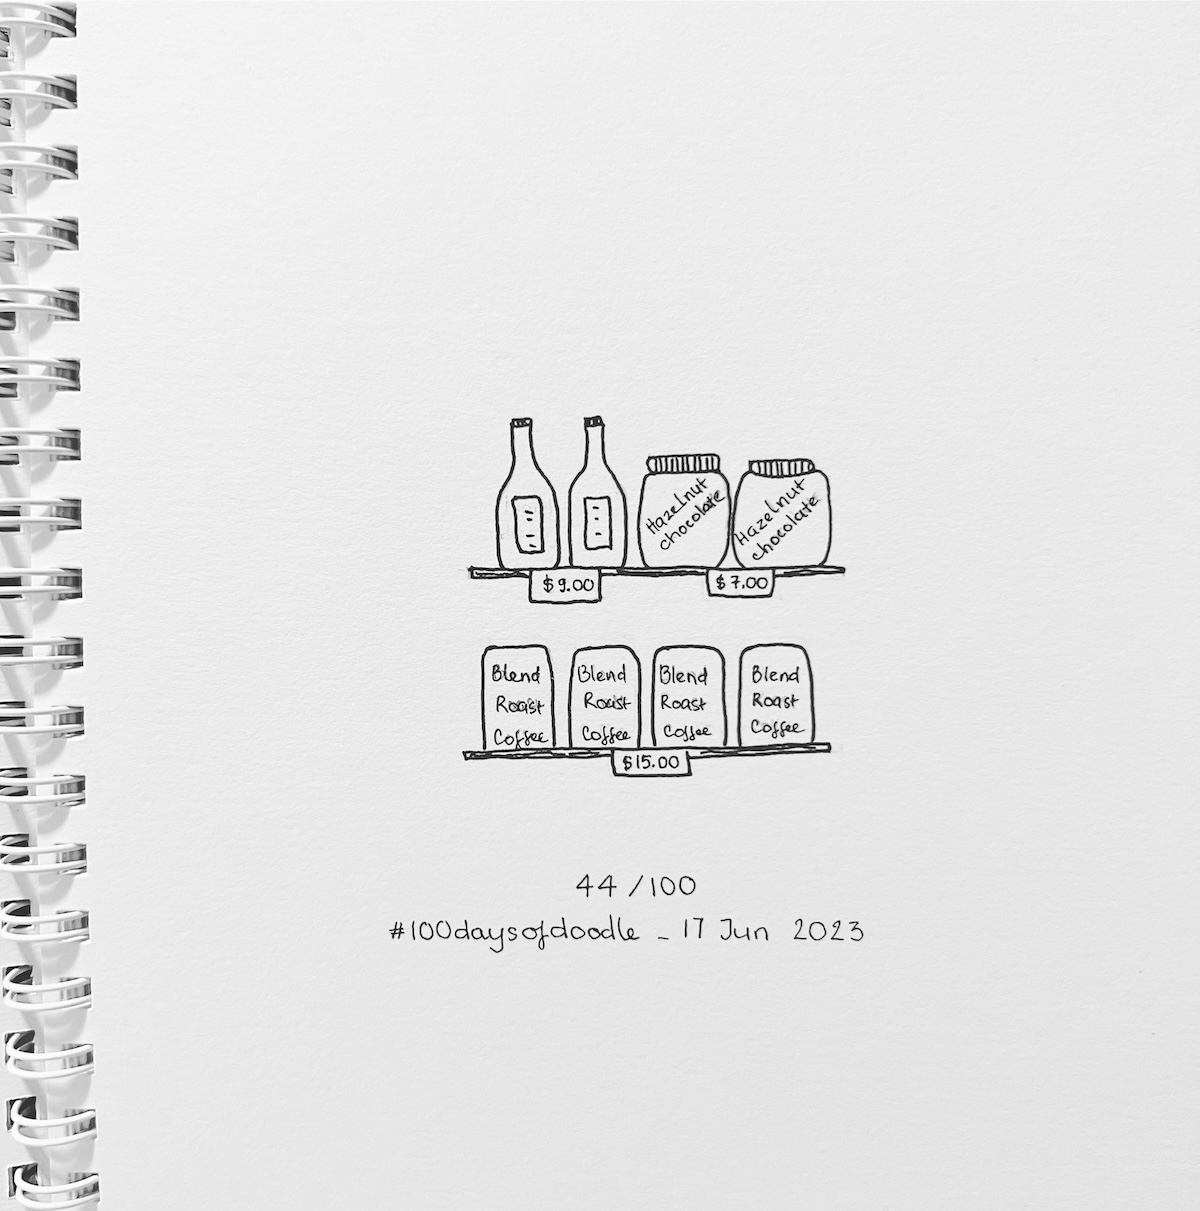 Hazelnut
chocolate
Hazelnut
chocolate
$9.00
$7.00
Blend
Roast
Coffee
Blend
Roast
Coffee
Blend
Roast
Coffee
Blend
Roast
Coffee
$15.00
44/100
#100daysofdoodle - 17 Jun 2023